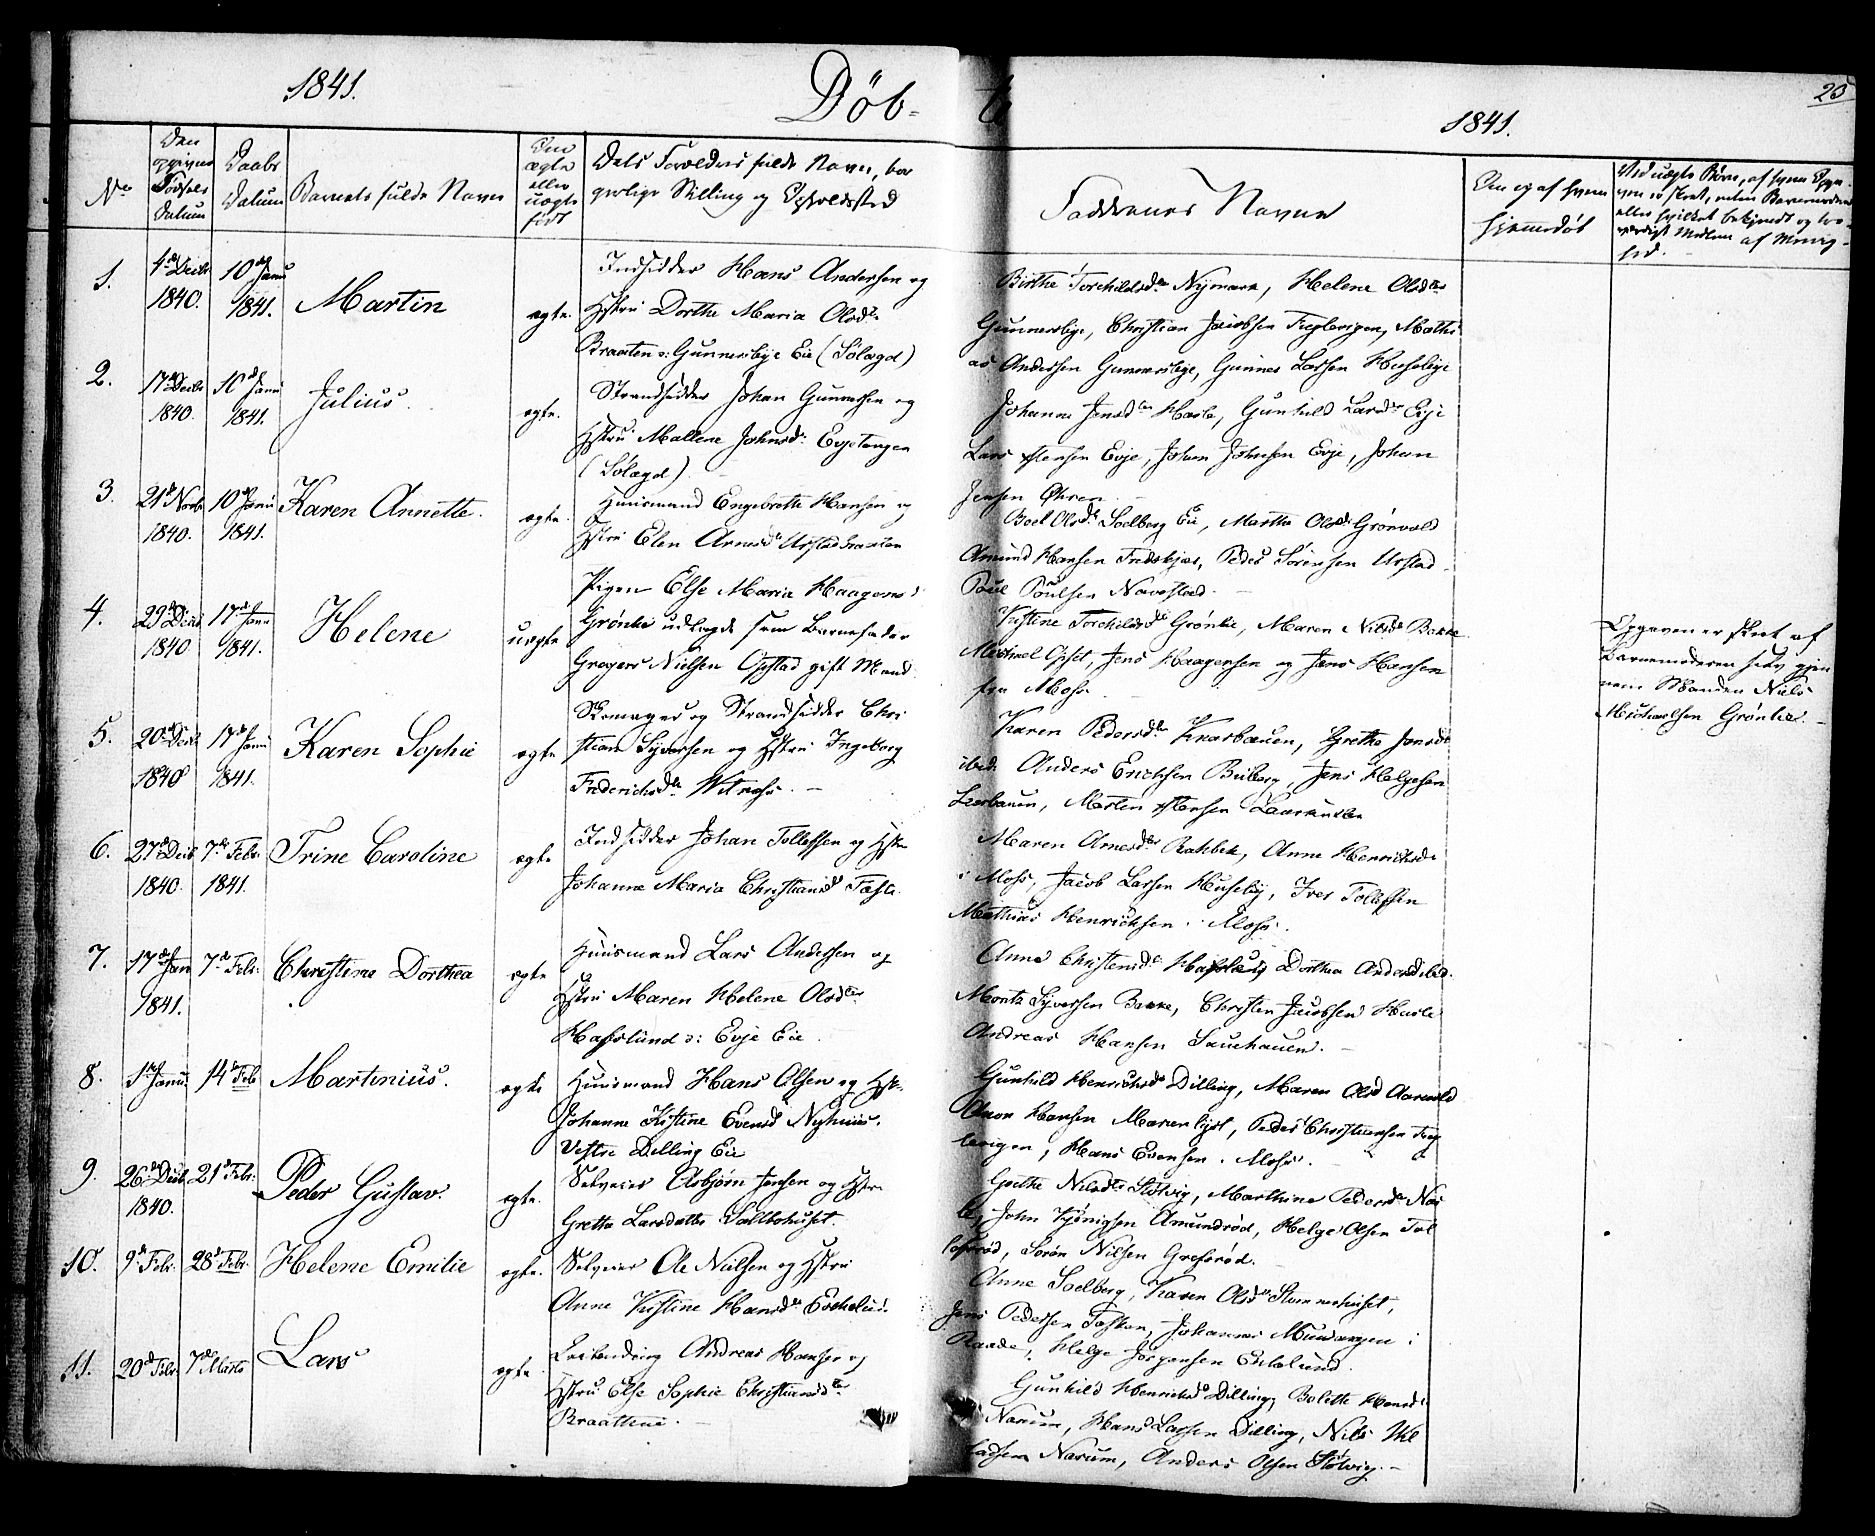 1841. Døb-
te 1841. 25
No
Den opgivne Fødsels Datum
Daabs Datum
Barnets fulde Navn
Om ægte eller uægte født
Dets Forældres fulde Navn, bor-
gerlige Stilling og Opholdssted
Faddernes Navne
Om og af hvem
hjemmedøbt
Ved uægte Børn, af hvem Opga-
ven er skeet, uden Barnemoderen
eller hvilket bekjendt og tro-
værdigt Medlem af Menig-
hed.
1. 4de Decbr 1840. 10de Janu 1841. Martin ægte.
Indsidder Hans Andersen og
Hstru Dorthe Maria Olsdr
Braaten v: Gunnersbye Eie (Sølægd)
Birthe Torchildsdr Nymark, Helene Olsdtr
Gunnersbye, Christian Jacobsen Teglverpen, Mathi-
as Andersen Gunnersbye, Gunner Larsen Husebye
2. 17de Decbr 1840. 10de Janu 1841. Julius. ægte.
Strandsidder Johan Gunnersen og
Hstru Mallene Johnsdr Evjetangen
(Sølægd).
Johanne Jensdtr Hasle, Gunhild Larsdr Evje
Lars Hansen Evje, Johan Johnsen Evje, Johan
Jensen Øhren.
3. 21de Novbr 1840. 10de Janu 1841. Karen Annette. ægte.
Huusmand Engebrethe Hansen og
Hstru Elen Arnesdr Urstadbraaten
Boel Olsdr Soelberg Eie, Marthe Olsdr Grønvold
Amund Hansen Fredskjær, Peder Sørensen Urstad
Poul Poulsen Navestad.
4. 23de Decbr 1840 17de Janu 1841. Helene uægte
Pigen Else Maria Haagensd:
Grønlie udlagde som Barnefader
Gregers Nielsen Opstad gift Mand.
Kistine Torchildsdr Grønlie, Maren Nilsdr Bakke
Michael Opset, Jens Haagensen og Jens Hansen
fra Moss.
Opgaven er skeet af
Barnemoderen selv gjen
nem Manden Niels
Michaelsen Grønlie.
5. 20de Decbr 1840 17de Janu 1841. Karen Sophie ægte
Skomager og Strandsidder Chri
stian Syversen og Hstru Ingeborg
Frederichsdr Witnæss.
Karen Pedersdtr Knarbauen, Grethe Jensdtr
ibid. Anders Erichsen Biberg, Jens Helgesen
Lærbauen, Morten Hansen
6. 27de Decbr 1840. 7de Febr. 1841. Trine Caroline ægte
Indsidder Johan Tollefsen og Hstru
Johanne Maria Christiansdr Tasle.
Maren Arnesdtr Rahbek, Anne Henrichsdr
i Moss, Jacob Larsen Husebÿ, Iver Tollefsen
Mathias Henrichsen. Moss.
7. 17de Jan 1841. 7de Febr: Christine Dorthea ægte
Huusmand Lars Andersen og
Hstru Maren Helene Olsdtr
Hafslund v: Evje Eie.
Anne Christensdr Hafslund, Dorthea Andersdr ibid.
Morits Syversen Bakke, Christen Jacobsen Hasle
Andreas Hansen Sauehauen.
8. 1ste Janu. 14de Feb Martinius. ægte
Huusmand Hans Olsen og Hstr.
Johanne Kistine Evensd Nyhuus.
Vestre Dilling Eie
Gunhild Henrichsdr Dilling, Maren Olsd Aarvold
Amon Hansen Marienlyst, Peder Christiansen Teg
lverpen, Hans Evensen. Moss.
9. 26de Decbr 1840. 21de Febr: Peder Gustav. ægte.
Selveier Asbjørn Jensen og Hstr.
Grethe Larsdatter Saltbohuset.
Grethe Nilsdtr Støtvig, Marthine Pedersdr Næs
le, John Kjønigsen Amundrød, Helge Olsen Tol
lefsrød, Sørøn Nilsen Grefsrød.
10. 9de Febr. 28de Febr. Helene Emilie ægte.
Selveier Ole Nielsen og Hstru
Anne Kistine Hansdr Eschelund.
Anne Soelberg, Karen Olsdr Stommehuset,
Jens Pedersen Tasken, Johannes i
Raade, Helge Jørgensen Eskelund.
11. 20de Febr. 7de Marts Lars ægte.
Leilending Andreas Hansen og
Hstru Else Sophie Christiansdtr
Braathene.
Gunhild Henrichsdr Dilling, Bolette Hansdr
Narum, Hans Larsen Dilling, Nils Wil
ladsen Narum, Anders Olsen Støtvig.